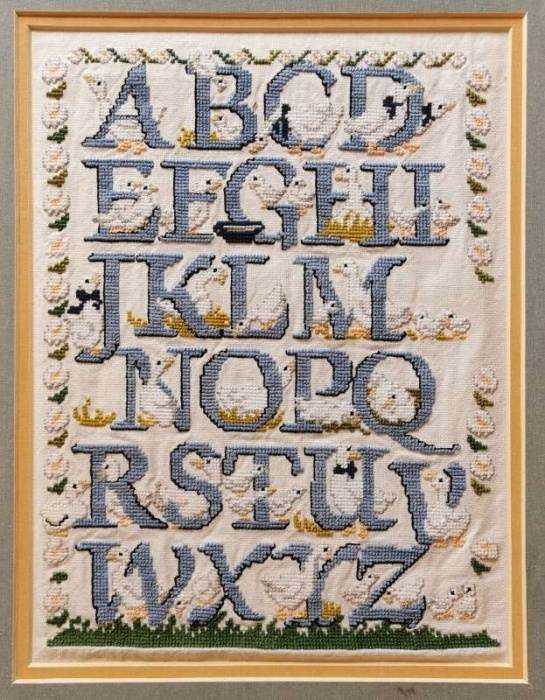 ABCD
EFGHI
JKLM
NOPQ
RSTUV
WXYZ